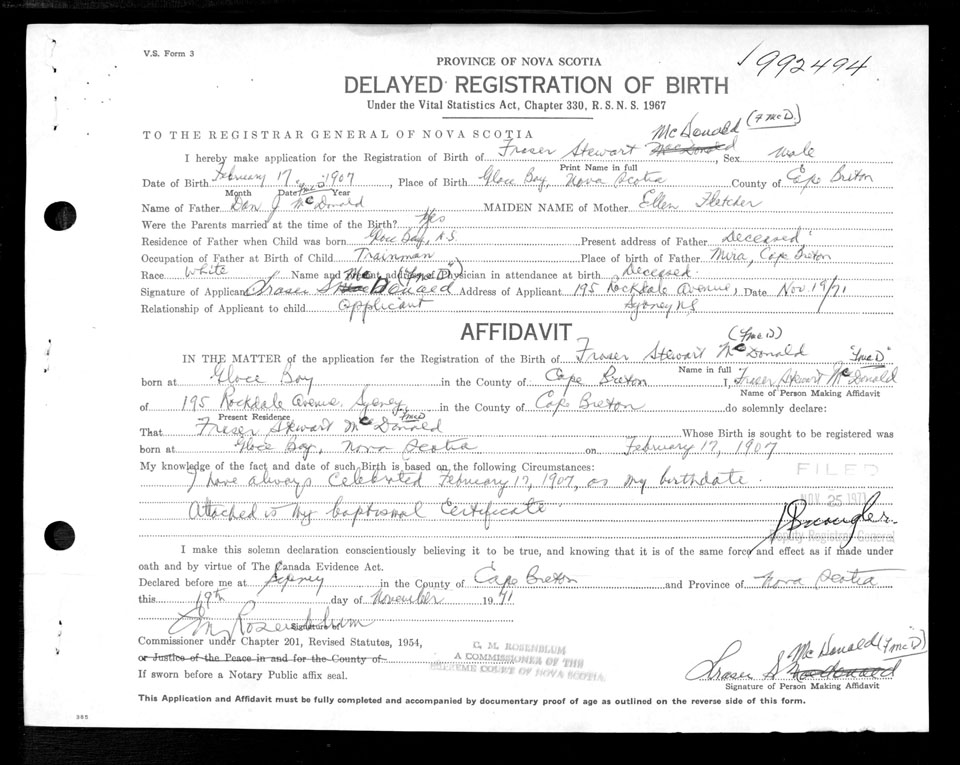 V.S. Form 3
PROVINCE OF NOVA SCOTIA
1992494
DELAYED REGISTRATION OF BIRTH
Under the Vital Statistics Act, Chapter 330, R. S. N. S. 1967
McDonald (F McD.)
TO THE REGISTRAR GENERAL OF NOVA SCOTIA
I hereby make application for the Registration of Birth of Fraser Stewart, Sex male
Print Name in full
Date of Birth February 17, 1907, Place of Birth Glace Bay, Nova Scotia County of Cape Breton
Month Date Year FMcD
Name of Father Dan J McDonald MAIDEN NAME of Mother Ellen Fletcher
Were the Parents married at the time of the Birth? Yes
Residence of Father when Child was born Glace Bay, N.S. Present address of Father Deceased
Occupation of Father at Birth of Child Trainman Place of birth of Father Mira, Cape Breton
Race White Name and address of Physician in attendance at birth Deceased
Signature of Applicant Fraser S McDonald Address of Applicant 195 Rockdale Avenue, Date Nov. 19/71
Relationship of Applicant to child applicant Sydney N.S.
AFFIDAVIT (FMcD)
IN THE MATTER of the application for the Registration of the Birth of Fraser Stewart McDonald "FMcD"
Name in full
born at Glace Bay in the County of Cape Breton I, Fraser Stewart McDonald
Name of Person Making Affidavit
of 195 Rockdale Avenue, Sydney in the County of Cape Breton do solemnly declare:
Present Residence FMcD
That Fraser Stewart McDonald Whose Birth is sought to be registered was
born at Glace Bay, Nova Scotia on February 17, 1907
My knowledge of the fact and date of such Birth is based on the following Circumstances:
FILED
I have always celebrated February 17, 1907, as my birthdate.
NOV 25 1971
Attached is my baptismal Certificate
Deputy Registrar General
I make this solemn declaration conscientiously believing it to be true, and knowing that it is of the same force and effect as if made under
oath and by virtue of The Canada Evidence Act.
Declared before me at Sydney in the County of Cape Breton and Province of Nova Scotia
this 19th day of November 1971
C M Rosenblum
Signature of
Commissioner under Chapter 201, Revised Statutes, 1954,
or Justice of the Peace in and for the County of
If sworn before a Notary Public affix seal.
C. M. ROSENBLUM
A COMMISSIONER OF THE
SUPREME COURT OF NOVA SCOTIA
McDonald (FMcD)
Fraser S
Signature of Person Making Affidavit
This Application and Affidavit must be fully completed and accompanied by documentary proof of age as outlined on the reverse side of this form.